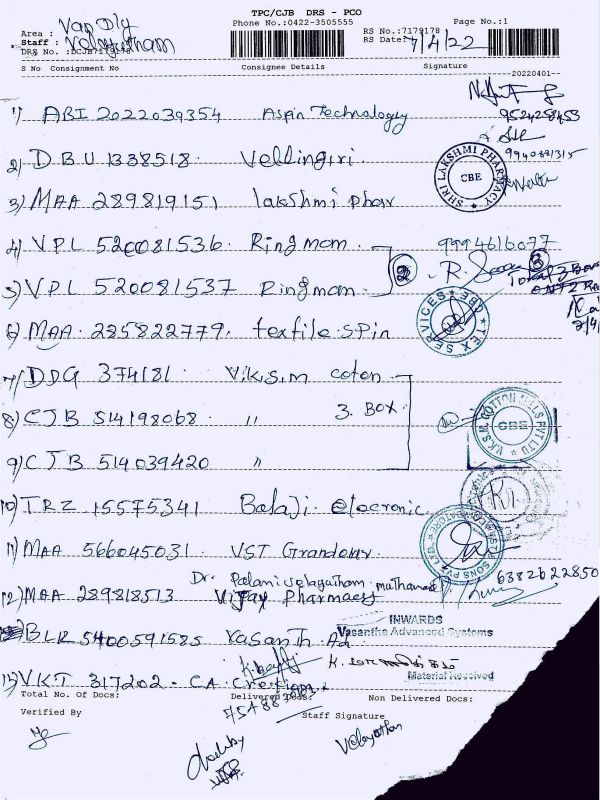 TPC/CJB DRS - PCO
Phone No.:0422-3505555
Page No.:1
Area : Van Dly
Staff : Velayutham
DRS No :DCJB7179178
RS No.:7179178
RS Date: 7/4/22
S No Consignment No Consignee Details Signature
--20220401--
1) ABI 2022039354 Aspin Technology
9524258453
2) DBU 1338518. Vellingiri
9940881315
SHRI LAKSHMI PHARMACY CBE
3) MAA 289819151 lakshmi phar
4) VPL 520081536. Ring mam. 9994616077
2 R. 3
5) VPL 520081537 Ringmam.
TEX SERVICES CBE
6) MAA. 285822779. textile spin
7) DDG 374181. V.K.S.M coton
8) CJB 514198068. " 3. BOX.
V.K.S.M. COTTON MILLS PVT LTD CBE
9) CJB 514039420 "
10) TRZ 15575341 Balaji. elocronic
11) MAA 566045031. VST Grandeur.
SONS PVT LTD.
Dr. Palanivelagutham. muthanad
6382622850
12) MAA 289818513 Vijay Pharmaesy
INWARDS
Vasantha Advanced Systems
BLR 5400591585 Vasanth Ad
Material Received
VKT 317202. CA. Cre
Total No. Of Docs: Delivered Docs: Non Delivered Docs:
Verified By Staff Signature
Velayuthan